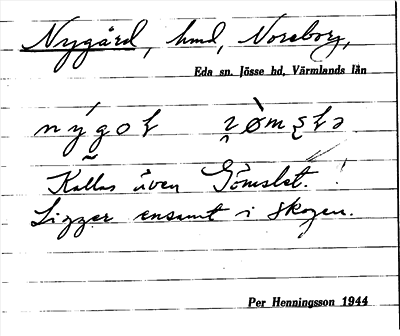 Nygård, hmd, Noreborg,
Eda sn. Jösse hd, Värmlands län
Kallas även Gömslet.
Ligger ensamt i skogen.
Per Henningsson 1944